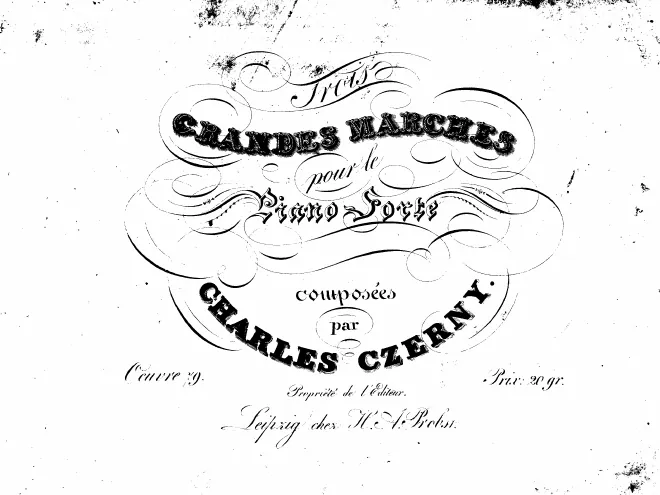 Trois
GRANDES MARCHES
pour le
Piano-Forte
composées
par
CHARLES CZERNY.
Oeuvre 79.
Prix: 20 gr.
Propriété de l'Editeur.
Leipzig chez H. A. Probst.